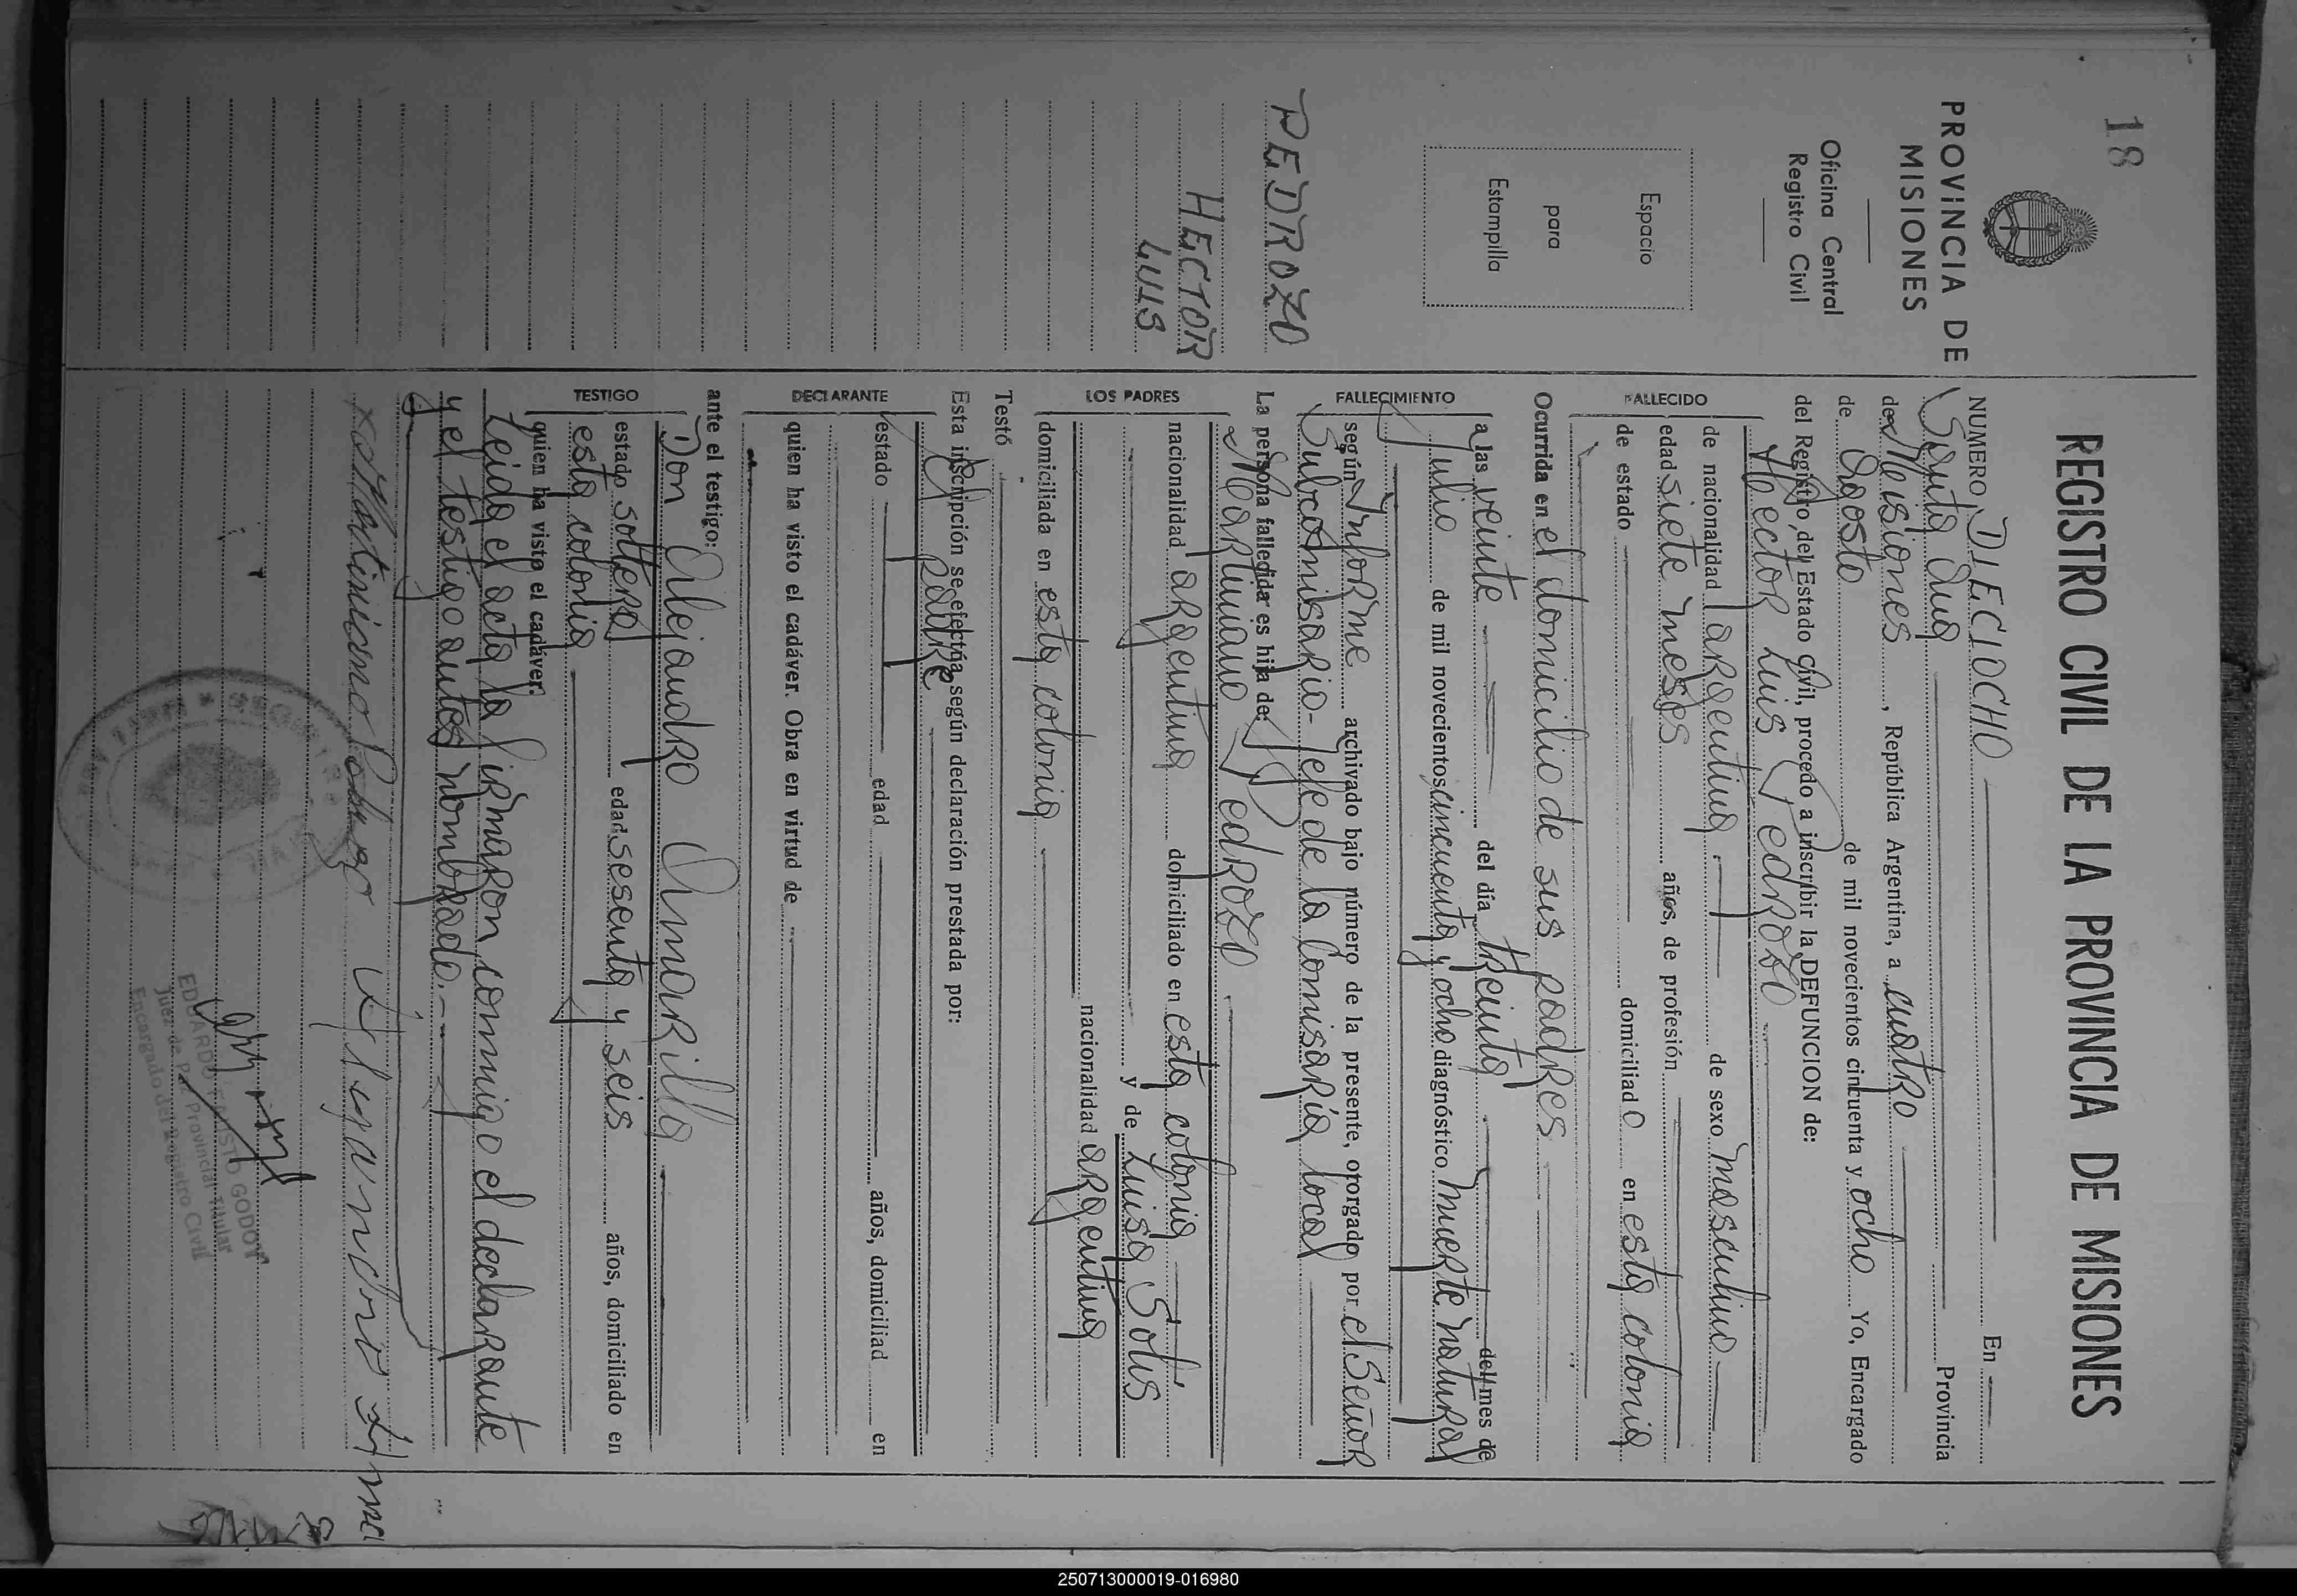 18
PROVINCIA DE
MISIONES
Oficina Central
Registro Civil
Espacio
para
Estampilla
PEDROZO
HECTOR
LUIS
REGISTRO CIVIL DE LA PROVINCIA DE MISIONES
NUMERO DIECIOCHO En
Santa Ana Provincia
de Misiones, República Argentina, a cuatro
de Agosto de mil novecientos cincuenta y ocho Yo, Encargado
del Registro del Estado civil, procedo a inscribir la DEFUNCION de:
FALLECIDO
Hector Luis Pedrozo
de nacionalidad argentina de sexo masculino
edad siete meses años, de profesión
de estado domiciliado en esta colonia
Ocurrida en el domicilio de sus padres
FALLECIMIENTO
a las veinte del día treinta del mes de
Julio de mil novecientos cincuenta y ocho diagnóstico muerte natural
según Informe archivado bajo número de la presente, otorgado por el Señor
Subcomisario-Jefe de la Comisaría local
La persona fallecida es hija de:
LOS PADRES
Martiniano Pedrozo
nacionalidad argentina domiciliado en esta colonia
y de Luisa Solis
nacionalidad argentina
domiciliada en esta colonia
Testó
Esta inscripción se efectúa según declaración prestada por:
DECLARANTE
El padre
estado edad años, domiciliad en
quien ha visto el cadáver. Obra en virtud de
ante el testigo:
TESTIGO
Don Alejandro Amarilla
estado soltero edad sesenta y seis años, domiciliado en
esta colonia
quien ha visto el cadáver.
Leida el acta la firmaron conmigo el declarante
y el testigo antes nombrado.-
EDUARDO GODOY
Juez de Paz Provincial Titular
Encargado del Registro Civil
250713000019-016980